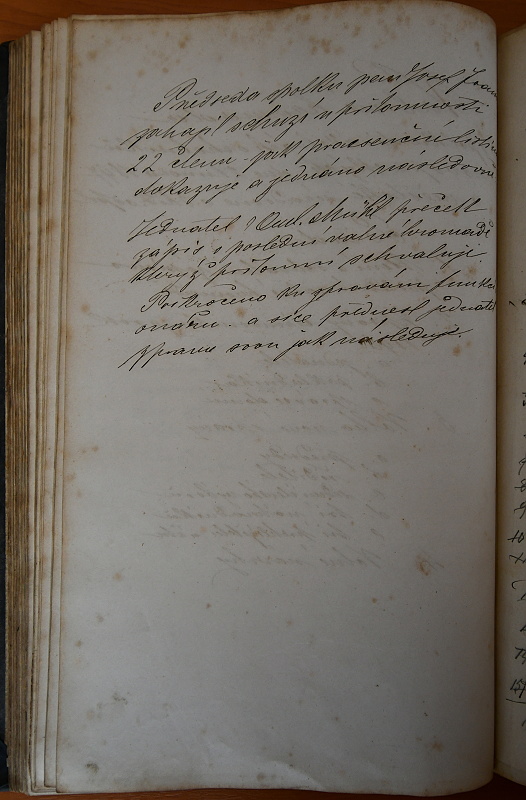 Předseda spolku pan Josef
zahajil schuzi u přítomnosti
22 členu jak praesenční listin
dokazuje a jednáno následovně
Jednatel přečetl
zápis s poslední valné hromadě
kterýž přítomní schvaluji.
Prikročeno ku zprávám funkci
onářu. a sice přednesl jednatel
zpravu svou jak následuje.